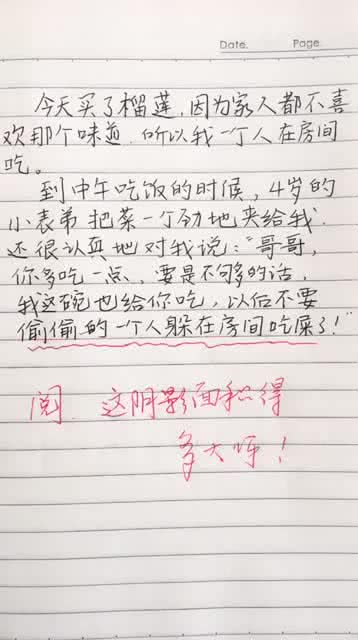 Date. Page.
今天买了榴莲,因为家人都不喜
欢那个味道,所以我一个人在房间
吃。
到中午吃饭的时候,4岁的
小表弟把菜一个劲地夹给我,
还很认真地对我说:"哥哥,
你多吃一点,要是不够多的话,
我这碗也给你吃,以后不要
偷偷的一个人躲在房间吃屎了!"
阅.这阴影面积得
多大呀!